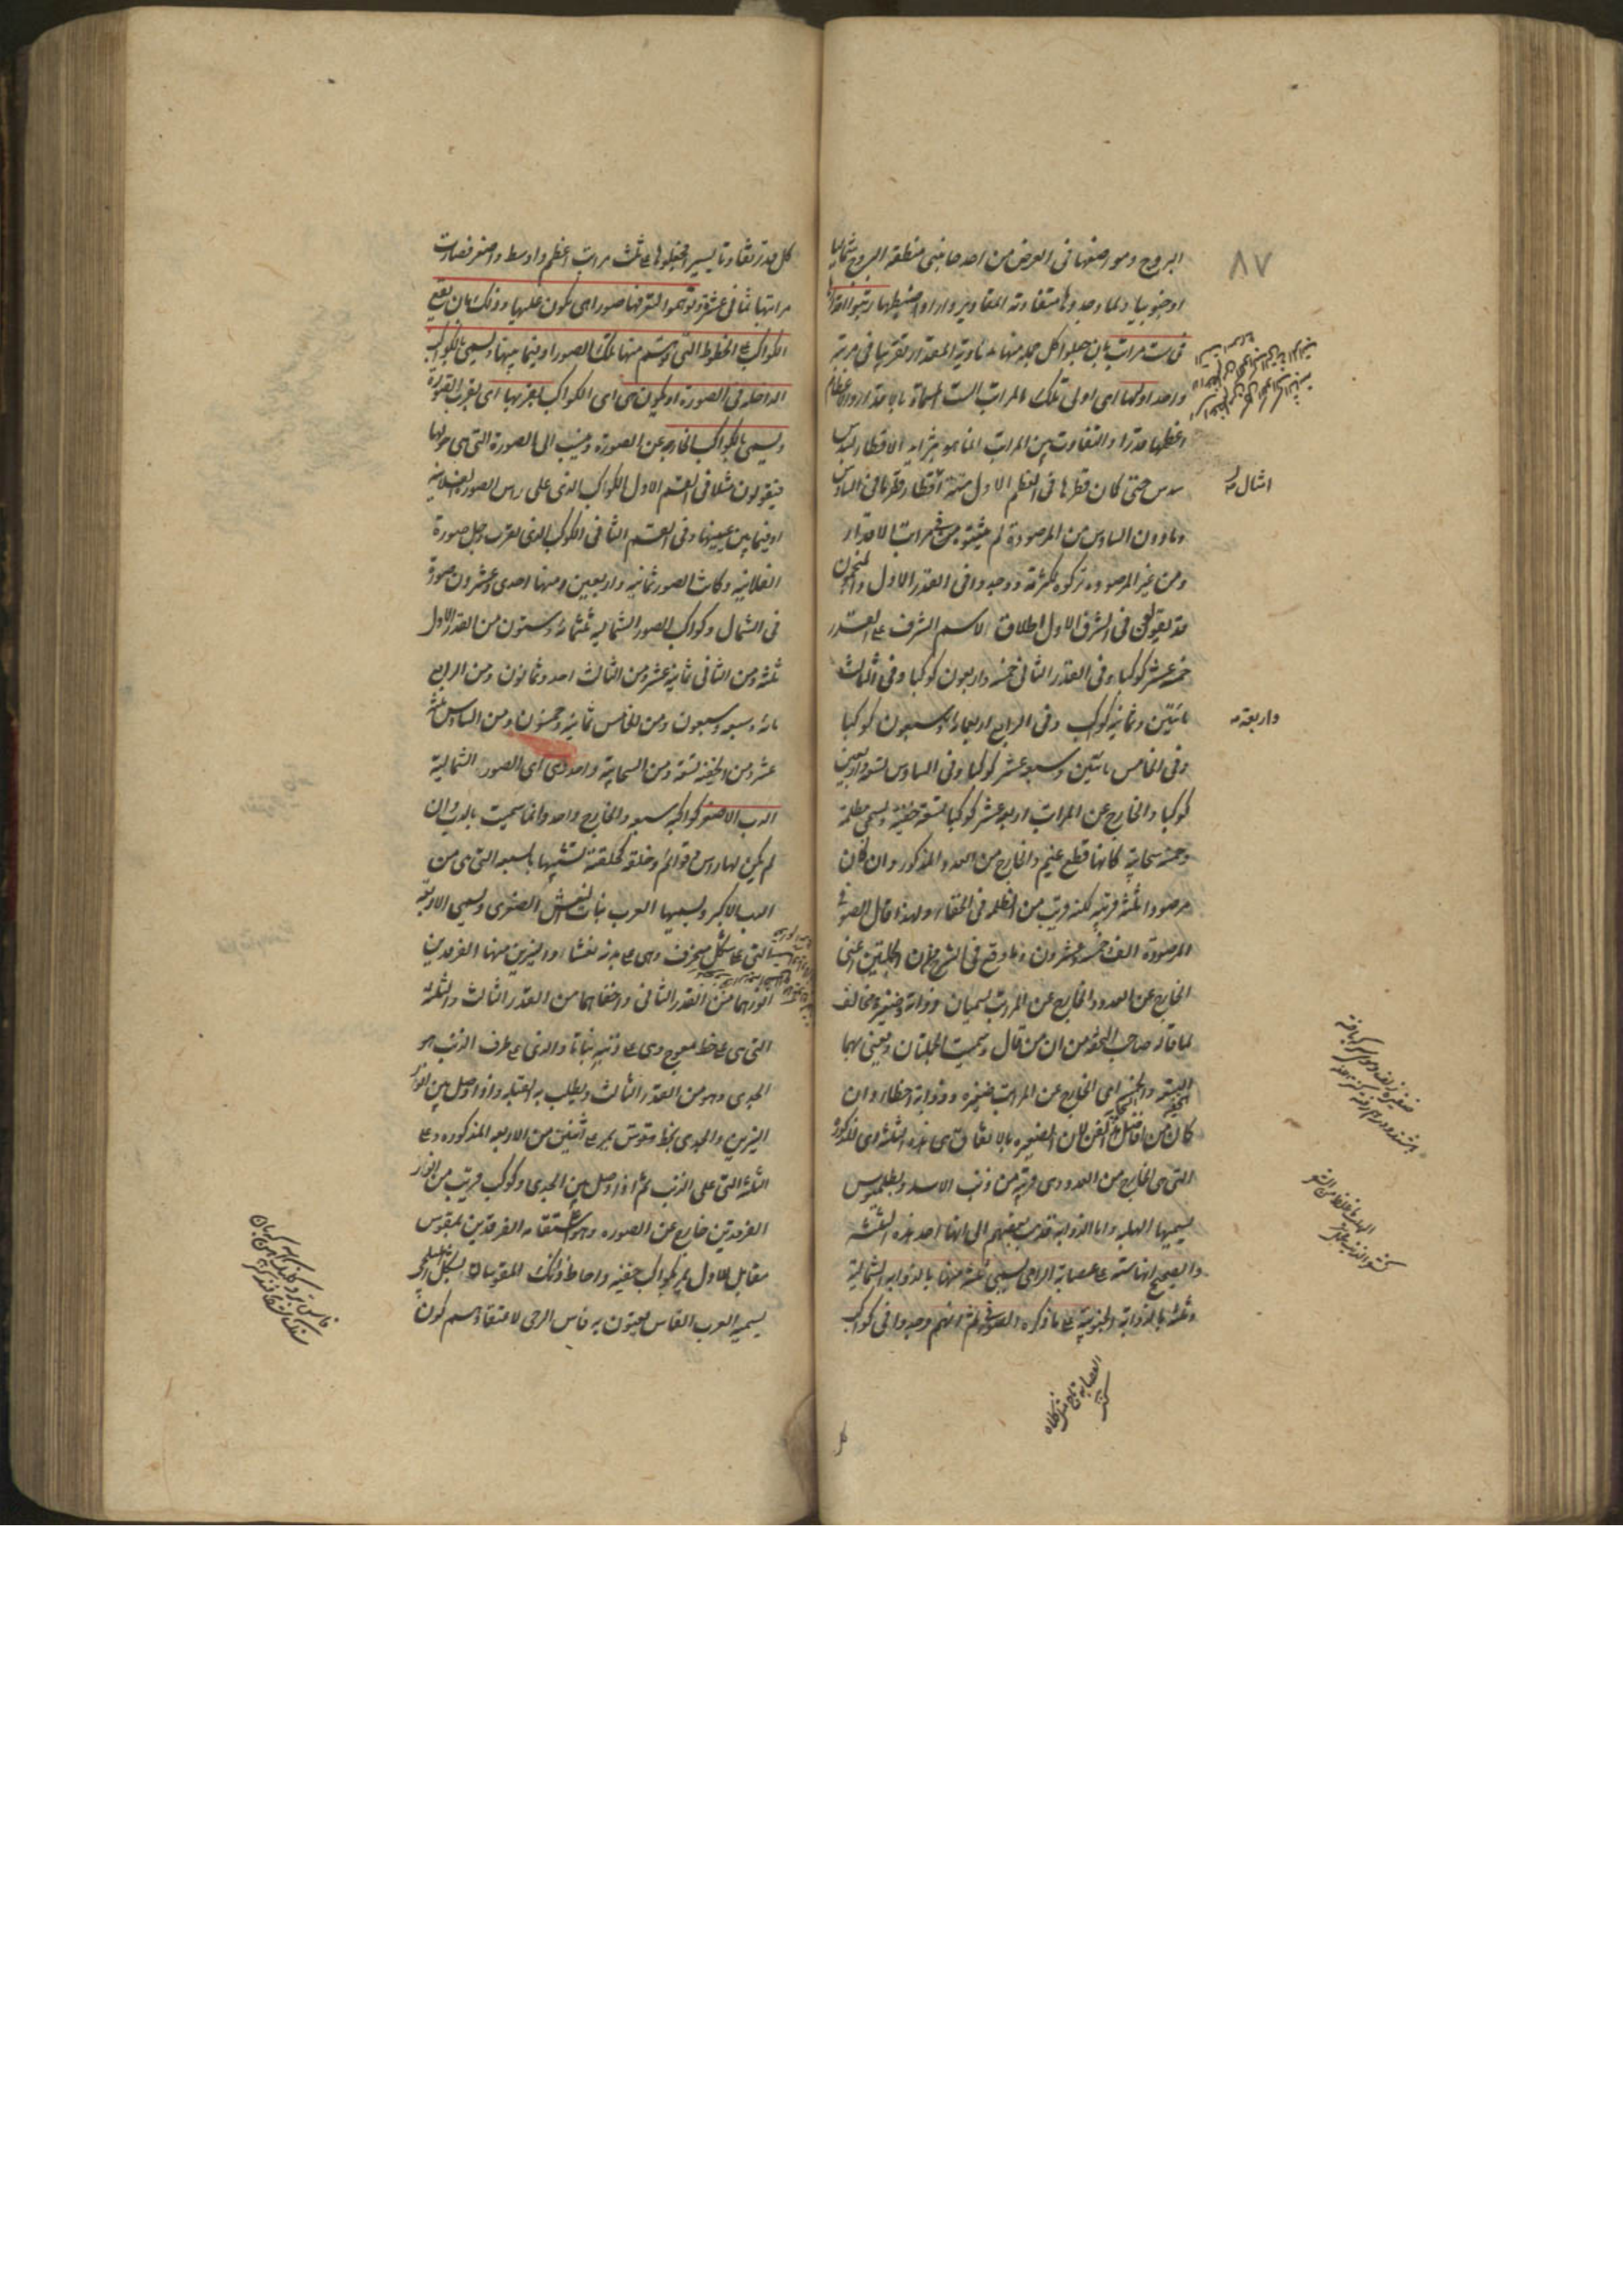 ٨٧
البروج ومواضعها فى العرض من احد جانبى منطقة البروج شماليا
او جنوبيا ولما وجدوها متفاوتة المقادير وارادوا ضبطها رتبوا اقدارها
فى ست مراتب بان جعلوا كل جملة منها متساوية المقدار تقريبا فى مرتبة
واحدة اولها اى اولى تلك المراتب الست المسماة بالاقدار والاعظام
اعظمها قدرا والتفاوت بين المراتب انما هو بتزايد الاقطار بسدس
سدس حتى كان قطرها فى العظم الاول ستة اقطارها فى السادس
امثال
وما دون السادس من المرصودة لم يثبتوه من مراتب الاقدار
ومن غير المرصودة تركوه لكثرته ووجدوا فى القدر الاول والمنجمون
قد يقولون فى الشرف الاول اطلاقا لاسم الشرف على القدر
خمسة عشر كوكبا وفى القدر الثانى خمسة واربعون كوكبا وفى الثالث
مائتين وثمانية كواكب وفى الرابع اربعمائة وسبعون كوكبا
واربعة
وفى الخامس مائتين وسبعة عشر كوكبا وفى السادس تسعة واربعين
كوكبا والخارج عن المراتب اربعة عشر كوكبا تسعة خفية ويسمى مظلمة
وخمسة سحابية كانها قطع غيم والخارج من العدد المذكور وان كان
مرصودا ثلثة قريبة لكنه قريب من الظلمة فى الخفاء ولهذا قال الصوفى
المرصودة الف وخمسة وعشرون وما وقع فى الشرح من ان الجملتين اعنى
الخارج عن العدد والخارج عن المراتب يسميان ذؤابة وضفيرة مخالف
لما قاله صاحب التحفة من ان من قال وسميت الجملتان ويعنى بهما
التسعة والخمسة اى الخارج عن المراتب ضفيرة وذؤابة اخطأ وان
كان من افاضل الفن لان الضفيرة بالاتفاق هى هذه الثلثة اى المذكورة
التى هى الخارج من العدد وهى قريبة من ذنب الاسد وبطلميوس
يسميها الهلبة واما الذؤابة فذهب بعضهم الى انها احد هذه الثلثة
والصحيح انها ستة على عصابة الرامى يسمى ثلثة منها بالذؤابة الشمالية
وثلثة بالذؤابة الجنوبية على ما ذكره الصوفى ثم انهم وجدوا فى كواكب
كل قدر تفاوتا يسيرا فجعلوها على ثلث مراتب اعظم واوسط واصغر فصارت
مراتبها ثمانى عشرة وتوهموا لتعريفها صورا هى تكون عليها وذلك بان يقع
الكواكب على الخطوط التى يرتسم منها تلك الصور او فيما بينها ويسمى بالكواكب
الداخلة فى الصورة او يكون هى اى الكواكب بقربها اى بقرب الصورة
ويسمى بالكواكب الخارجة عن الصورة وينسب الى الصورة التى هى حولها
فيقولون مثلا فى القسم الاول الكواكب الذى على رأس الصورة الفلانية
او فيما بين عينيها وفى القسم الثانى الكوكب الذى بقرب رجل صورة
الفلانية وكانت الصور ثمانية واربعين ومنها احدى وعشرون صورة
فى الشمال وكواكب الصور الشمالية ثلثمائة وستون من القدر الاول
ثلثة ومن الثانى ثمانية عشر ومن الثالث احد وثمانون ومن الرابع
مائة وسبعة وسبعون ومن الخامس ثمانية وخمسون ومن السادس ثلثة
عشر ومن الخفية تسعة ومن السحابية واحد وهى اى الصور الشمالية
الدب الاصغر كواكبه سبعة والخارج واحد وانما سميت بالدب وان
لم يكن لها رؤس وقوائم وخلقة كخلقته لتشبيها بالسبعة التى هى من
الدب الاكبر ويسميها العرب بنات نعش الصغرى ويسمى الاربعة
التى على شكل منحرف وهى على بدنه نعشا والنيرين منها الفرقدين
انورهما من القدر الثانى واخفاهما من القدر الثالث والثلثة
التى هى على خط معوج وهى على ذنبه بناتا والذى على طرف الذنب هو
الجدى وهو من القدر الثالث ويطلب به القبلة واذا وصل بين انور
النيرين والجدى بخط مقوس يمر على اثنين من الاربعة المذكورة وعلى
الثلثة التى على الذنب ثم اذا وصل بين الجدى وكوكب قريب من انوار
الفرقدين خارج عن الصورة وهو على استقامة الفرقدين بمقوس
مقابل للاول يمر بكواكب خفية واحاط ذلك المقوسان بشكل
يسميه العرب الفاس يعنون به فاس الرحى لاعتقادهم كون